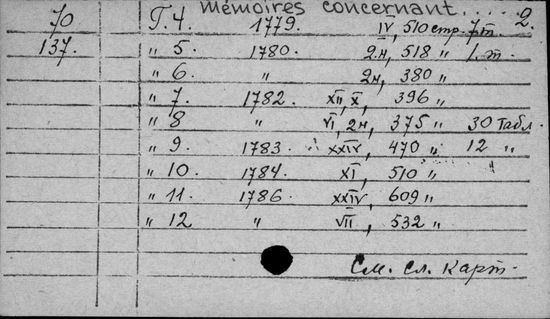 Mémoires concernant.... 2.
70 Т. 4. 1779. IV, 510 стр. 7 т.
137. " 5 1780. 2н, 518 " 1. т.
" 6. " 2н, 380 "
" 7. 1782. XII, X, 396 "
" 8 " VI, 2н, 375 " 30 Табл.
" 9. 1783. XXIV, 470 " 12 "
" 10. 1784. XI, 510 "
" 11. 1786. XXIV, 609 "
" 12 " VII, 532 "
См. сл. карт.